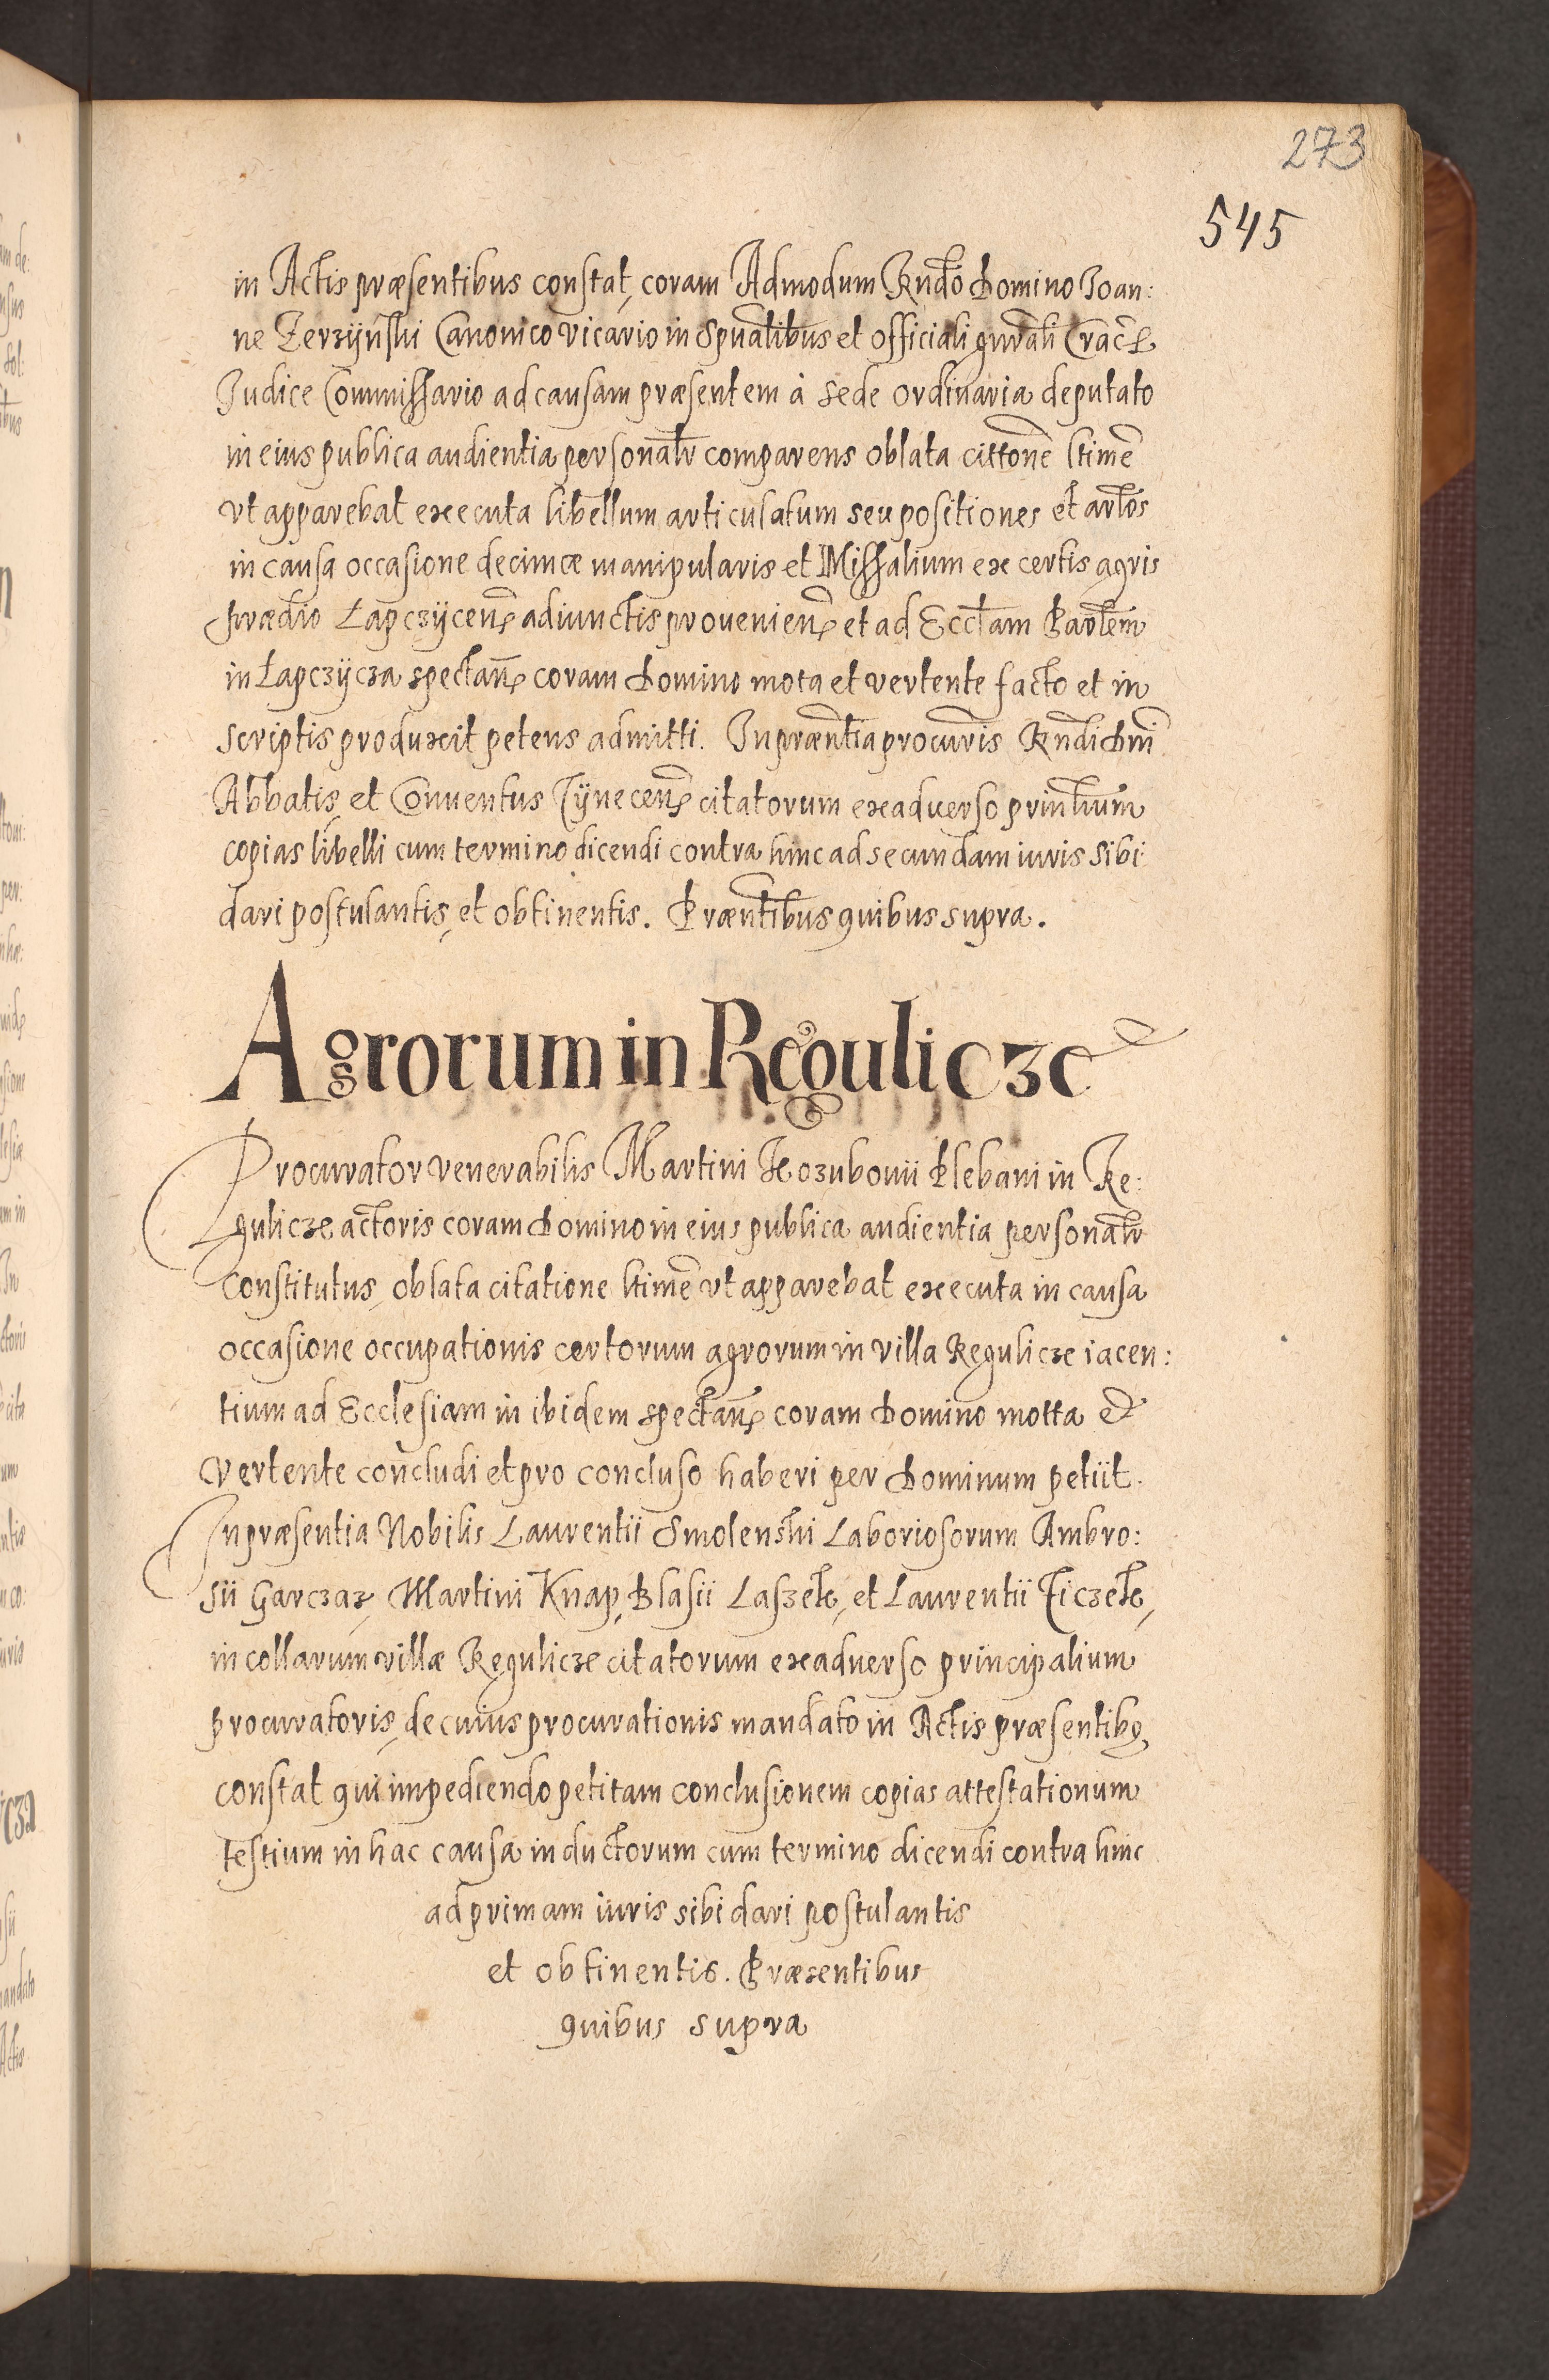 273
545
in Actis præsentibus constat, coram Admodum Rndo Domino Joan:
ne Zerzÿnski Canonico Vicario in Spualibus et Officiali gnrali Crac
Judice Commissario ad causam præsentem à Sede Ordinaria deputato
in eius publica audientia personalr comparens oblata cittone ltime
vt apparebat executa libellum articulatum seu positiones et artlos
in causa occasione decimæ manipularis et Missalium ex certis agris
prædio Lapczÿcen adiunctis prouenien et ad Ecclam Parlem
in Łapczÿcza spectan coram Domino mota et vertente facto et in
scriptis produxit petens admitti. In præntia procuris Rndi Dni
Abbatis et Conuentus Tÿnecen citatorum exaduerso prinlium
copias libelli cum termino dicendi contra hinc ad secundam iuris sibi
dari postulantis, et obtinentis. Præntibus quibus supra.
Agrorum in Regulicze
Procurator venerabilis Martini Kozubouii Plebani in Re:
gulicze actoris coram Domino in eius publica audientia personalr
constitutus, oblata citatione ltime vt apparebat executa in causa
occasione occupationis certorum agrorum in villa Regulicze iacen:
tium ad Ecclesiam in ibidem spectan coram Domino motta et
vertente concludi et pro concluso haberi per Dominum petiit.
In præsentia Nobilis Laurentii Smolenski Laboriosorum Ambro:
sii Garczarz, Martini Knap, Blasii Laszek, et Laurentii Ticzek,
incollarum villæ Regulicze citatorum exaduerso principalium
procuratoris, de cuius procurationis mandato in Actis præsentibq
constat qui impediendo petitam conclusionem copias attestationum
testium in hac causa inductorum cum termino dicendi contra hinc
ad primam iuris sibi dari postulantis
et obtinentis. Præsentibus
quibus supra